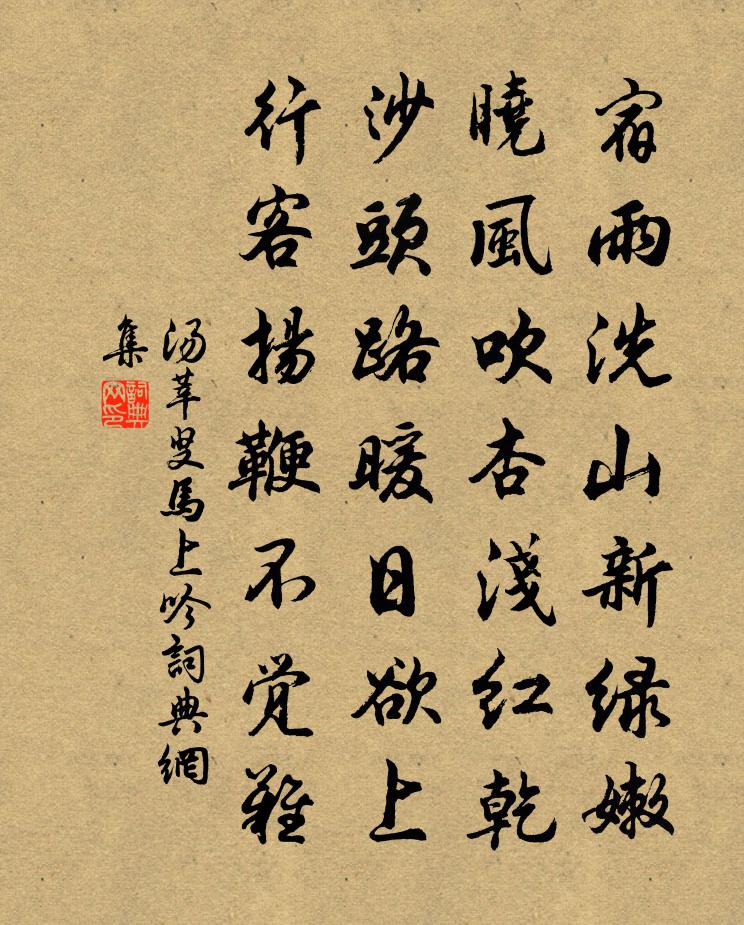 宿雨洗山新緑嫩
曉風吹杏淺紅乾
沙頭路暖日欲上
行客揚鞭不覺難
湯莘叟馬上吟詞典網
集
詞典網印